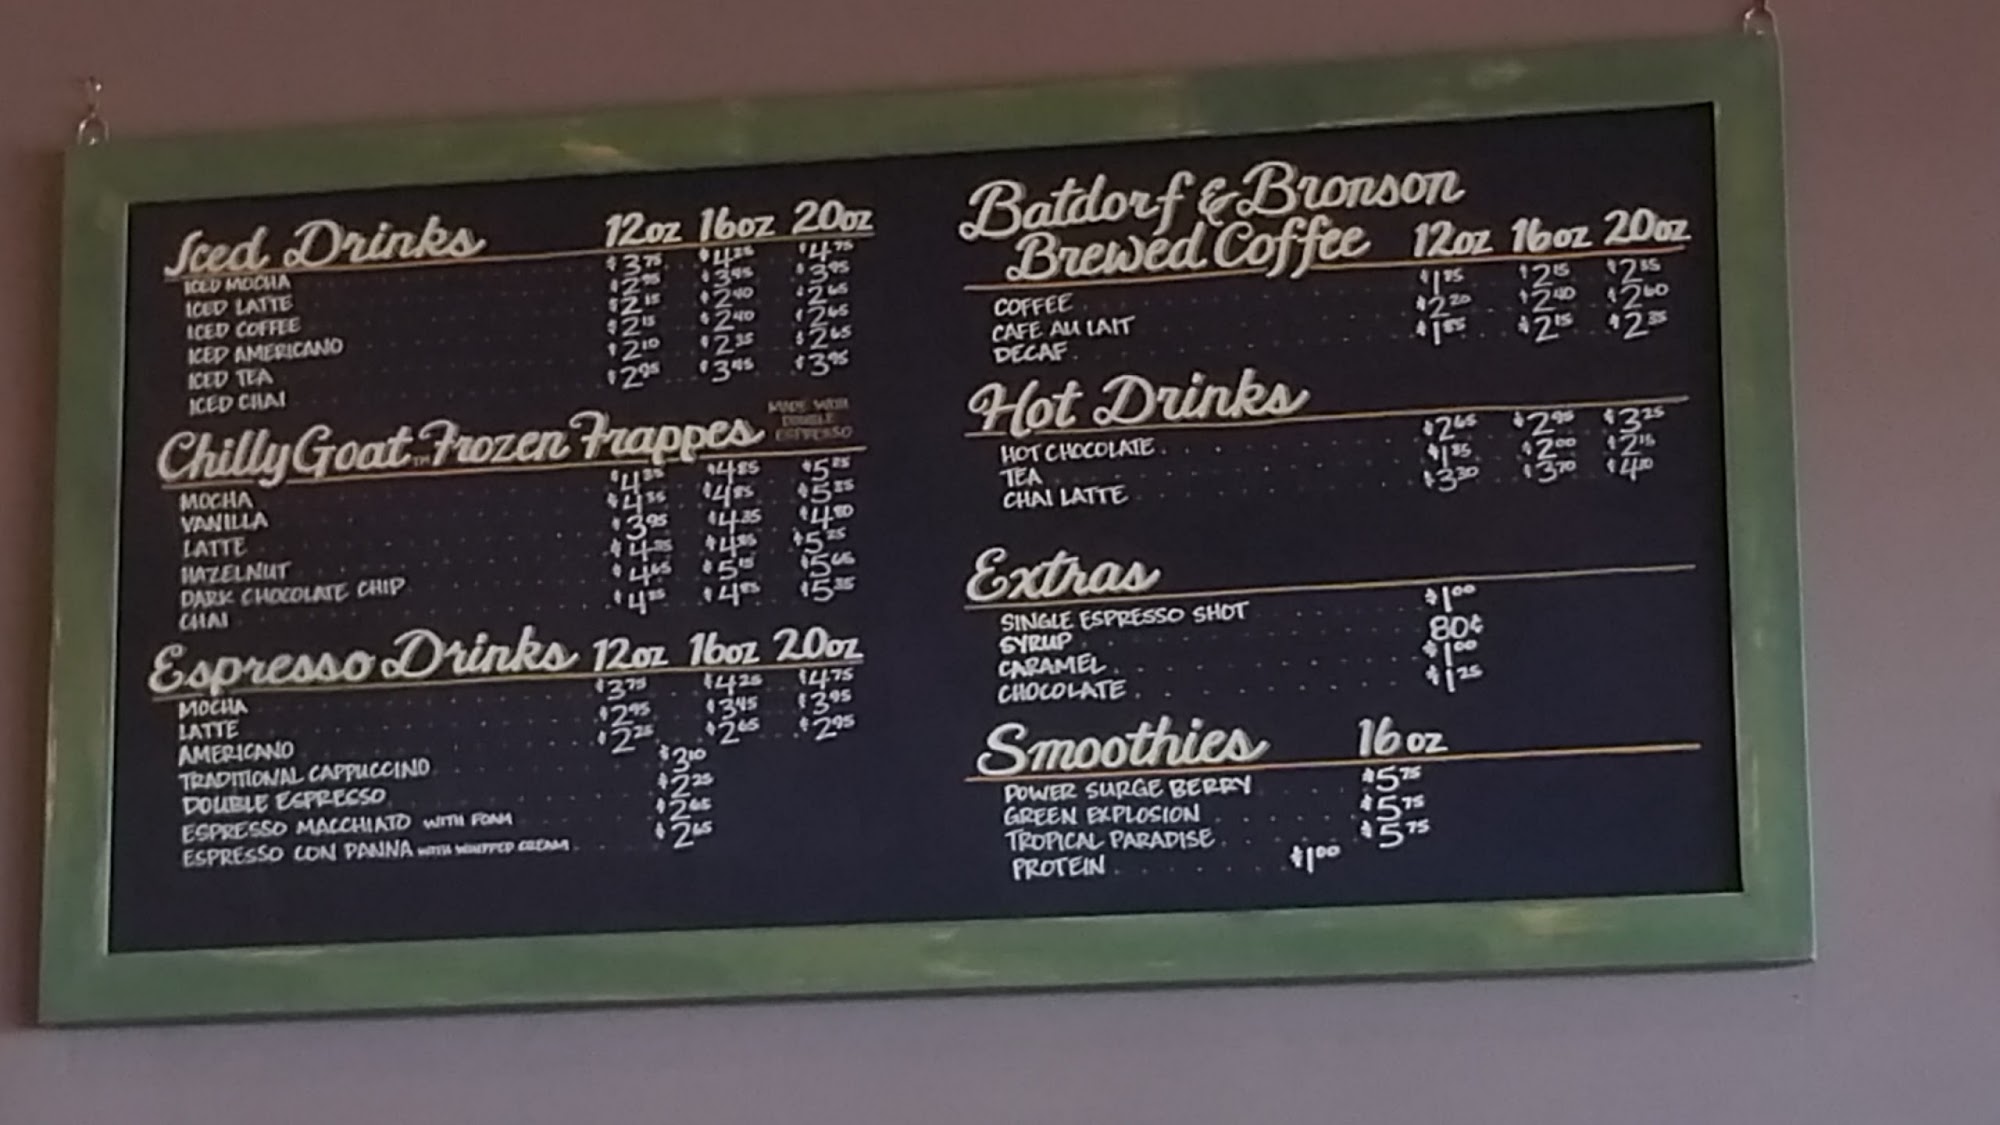 Iced Drinks 12oz 16oz 20oz
ICED MOCHA $3.75 $4.25 $4.75
ICED LATTE $2.95 $3.45 $3.95
ICED COFFEE $2.15 $2.40 $2.65
ICED AMERICANO $2.15 $2.40 $2.65
ICED TEA $2.10 $2.35 $2.65
ICED CHAI $2.95 $3.45 $3.95
Chilly Goat™ Frozen Frappes MADE WITH DOUBLE ESPRESSO
MOCHA $4.35 $4.85 $5.25
VANILLA $4.35 $4.85 $5.25
LATTE $3.95 $4.35 $4.80
HAZELNUT $4.35 $4.85 $5.25
DARK CHOCOLATE CHIP $4.65 $5.15 $5.65
CHAI $4.35 $4.85 $5.35
Espresso Drinks 12oz 16oz 20oz
MOCHA $3.75 $4.25 $4.75
LATTE $2.95 $3.45 $3.95
AMERICANO $2.25 $2.65 $2.95
TRADITIONAL CAPPUCCINO $3.10
DOUBLE ESPRESSO $2.25
ESPRESSO MACCHIATO WITH FOAM $2.65
ESPRESSO CON PANNA WITH WHIPPED CREAM $2.65
Batdorf & Bronson
Brewed Coffee 12oz 16oz 20oz
COFFEE $1.85 $2.15 $2.35
CAFE AU LAIT $2.20 $2.40 $2.60
DECAF $1.85 $2.15 $2.35
Hot Drinks
HOT CHOCOLATE $2.65 $2.95 $3.25
TEA $1.85 $2.00 $2.15
CHAI LATTE $3.30 $3.70 $4.10
Extras
SINGLE ESPRESSO SHOT $1.00
SYRUP 80¢
CARAMEL $1.00
CHOCOLATE $1.25
Smoothies 16oz
POWER SURGE BERRY $5.75
GREEN EXPLOSION $5.75
TROPICAL PARADISE $5.75
PROTEIN $1.00